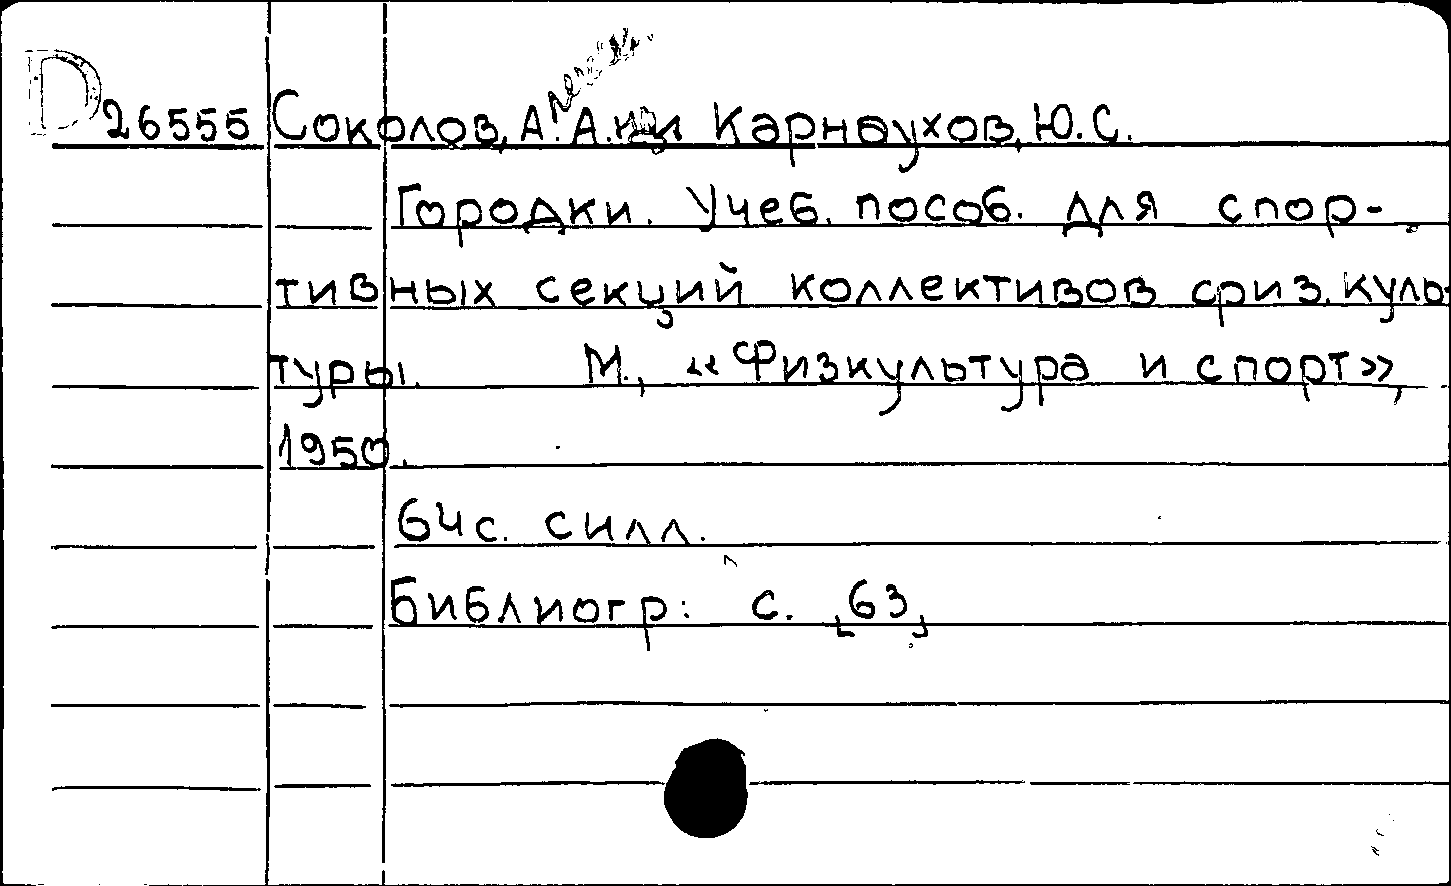 D 26555 Соколов, А. А. и Карнаухов, Ю. С.
Городки. Учеб. пособ. для спор-
тивных секций коллективов физ. куль-
туры. М., «Физкультура и спорт»,
1950.
64 с. с илл.
Библиогр: с. [63]